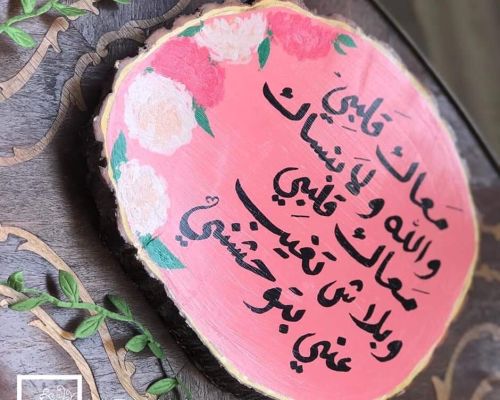 مَعاكَ قلبي
والله ولاَ بنساك
مَعاك قلبي
وبلاش تَغيب
عني بتوحشني